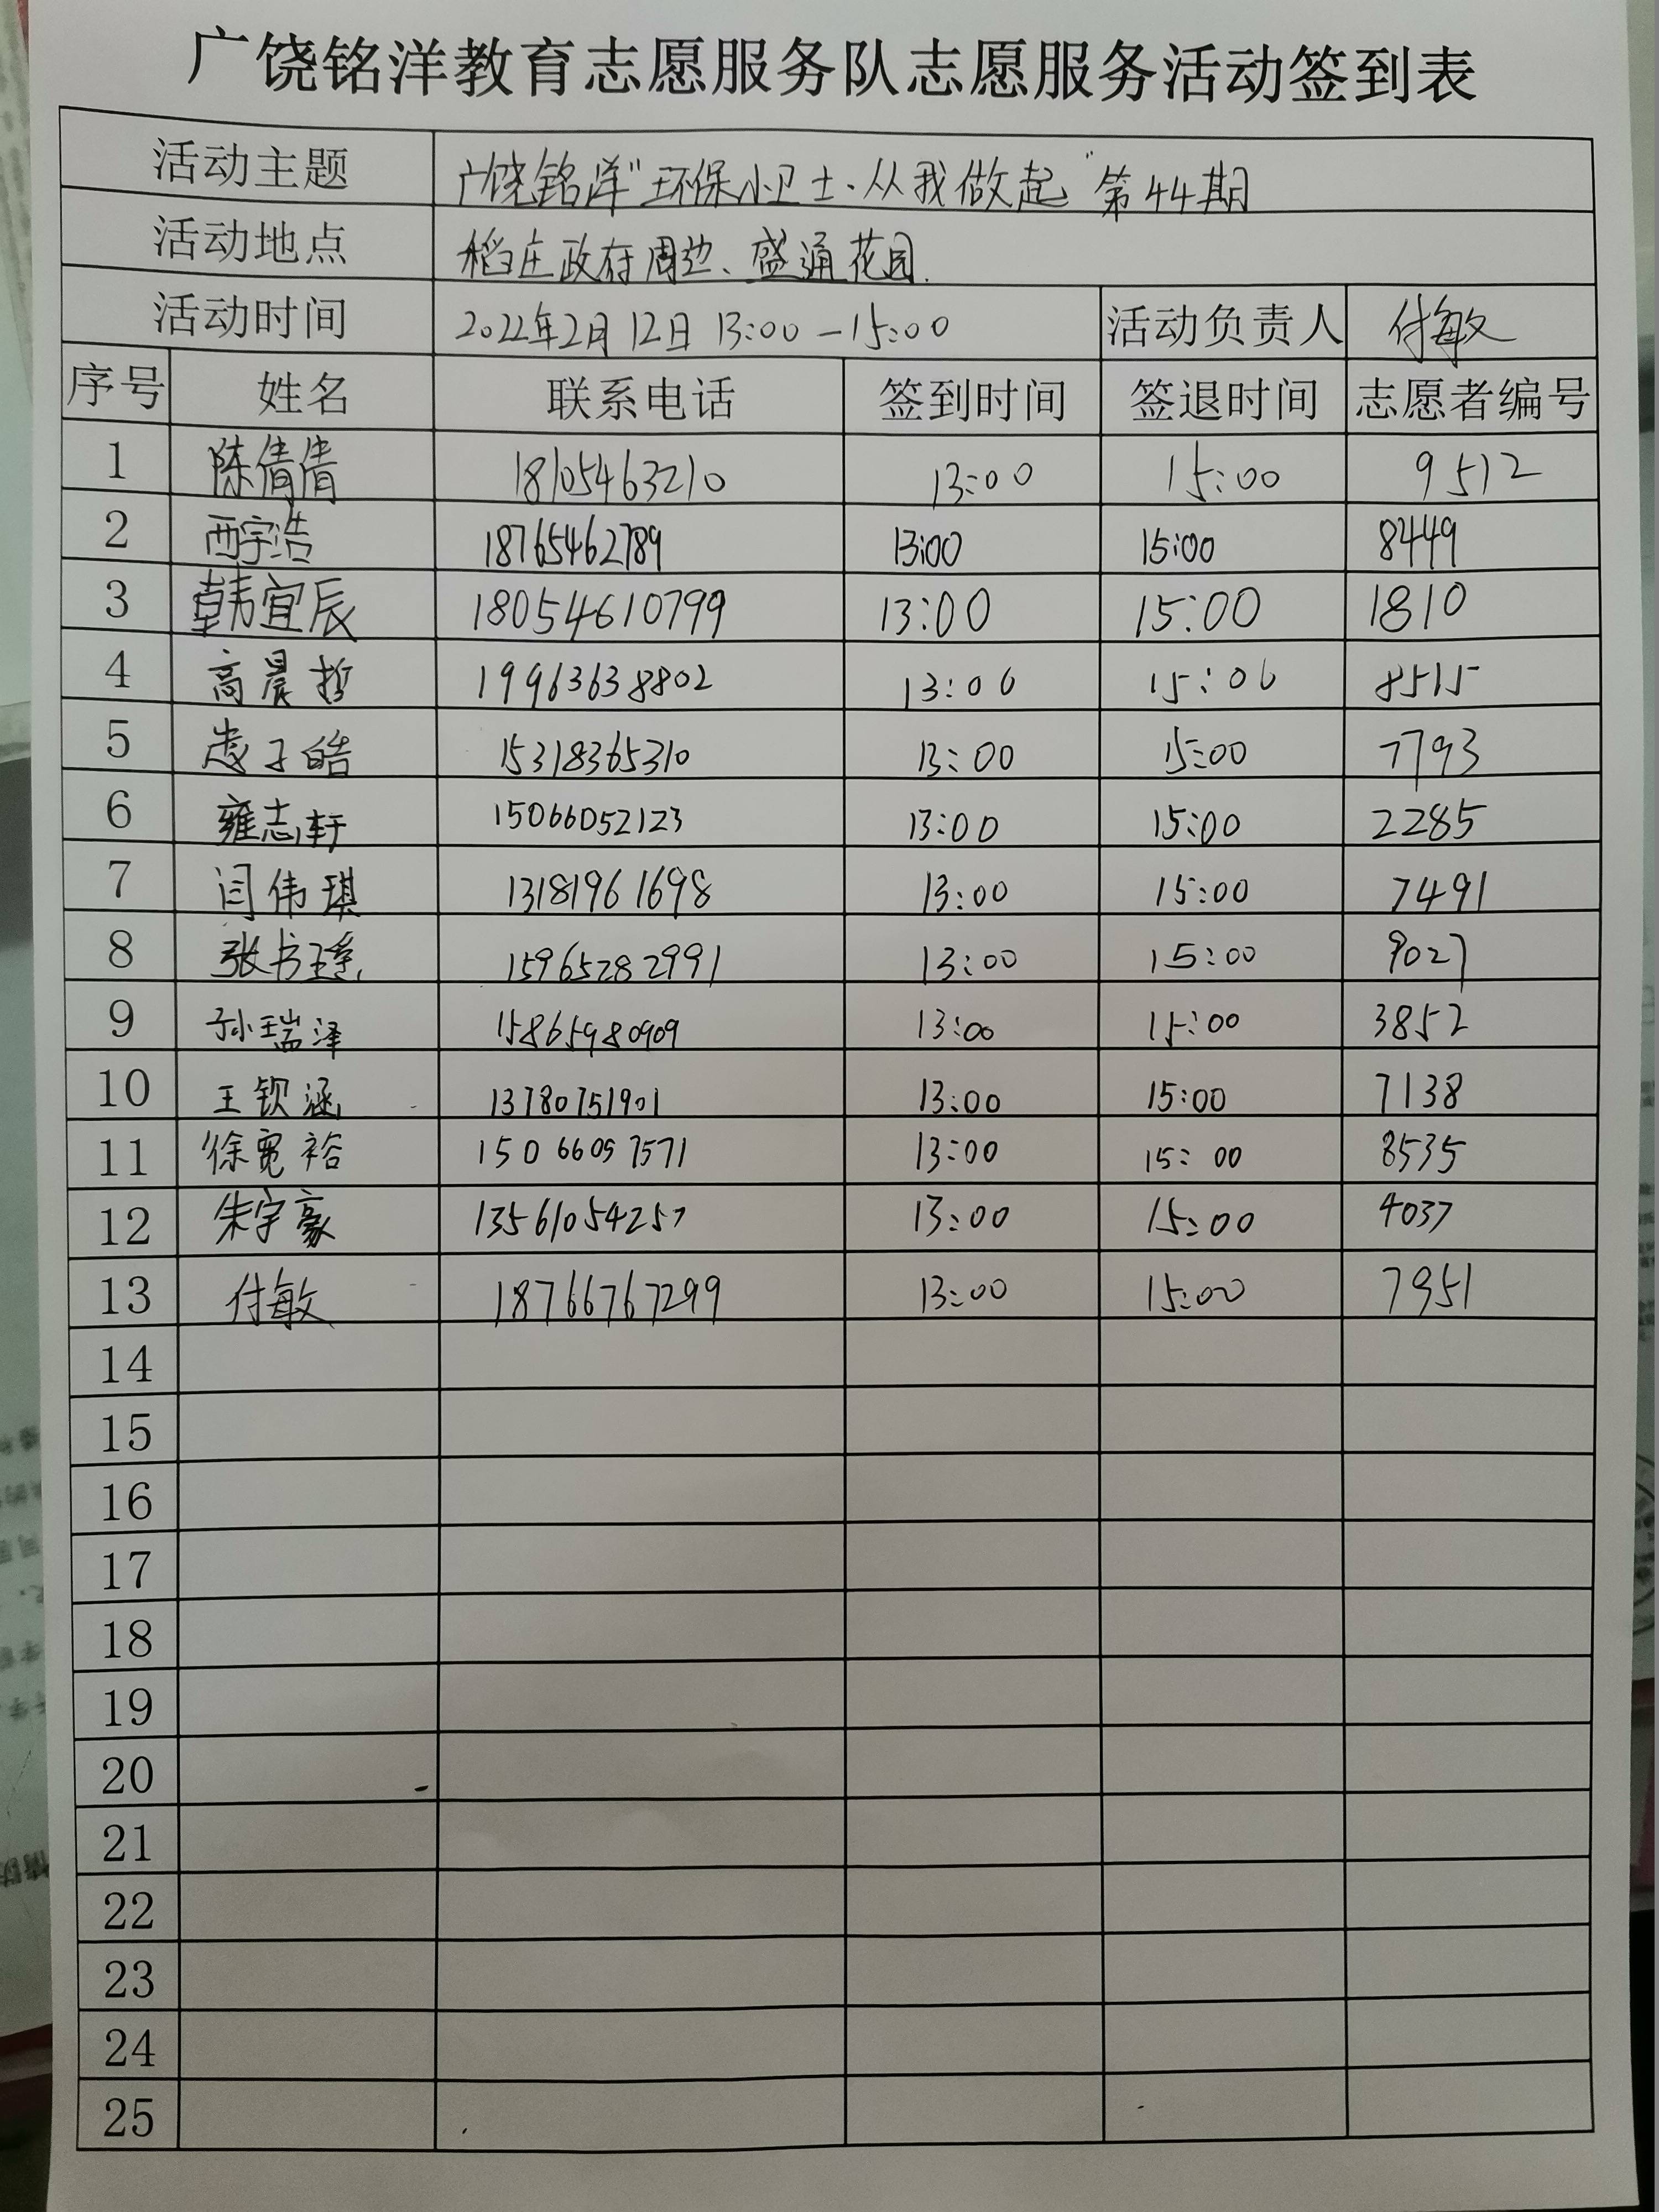 广饶铭洋教育志愿服务队志愿服务活动签到表
活动主题 广饶铭洋"环保小卫士·从我做起"第44期
活动地点 稻庄政府周边、盛通花园.
活动时间 2022年2月12日 13:00-15:00 活动负责人 付敏
序号 姓名 联系电话 签到时间 签退时间 志愿者编号
1 陈倩倩 18105463210 13:00 15:00 9512
2 西宇浩 18765462789 13:00 15:00 8449
3 韩宜辰 18054610799 13:00 15:00 1810
4 高晨哲 19963638802 13:00 15:00 8515
5 子皓 15318365310 13:00 15:00 7793
6 雍志轩 15066052123 13:00 15:00 2285
7 闫伟琪 13181961698 13:00 15:00 7491
8 张书瑶 15965282991 13:00 15:00 9027
9 孙瑞泽 15865980909 13:00 15:00 3852
10 王钦涵 13780751901 13:00 15:00 7138
11 徐宽裕 15066057571 13:00 15:00 8535
12 朱宇豪 13561054257 13:00 15:00 4037
13 付敏 18766767299 13:00 15:00 7951
14
15
16
17
18
19
20
21
22
23
24
25